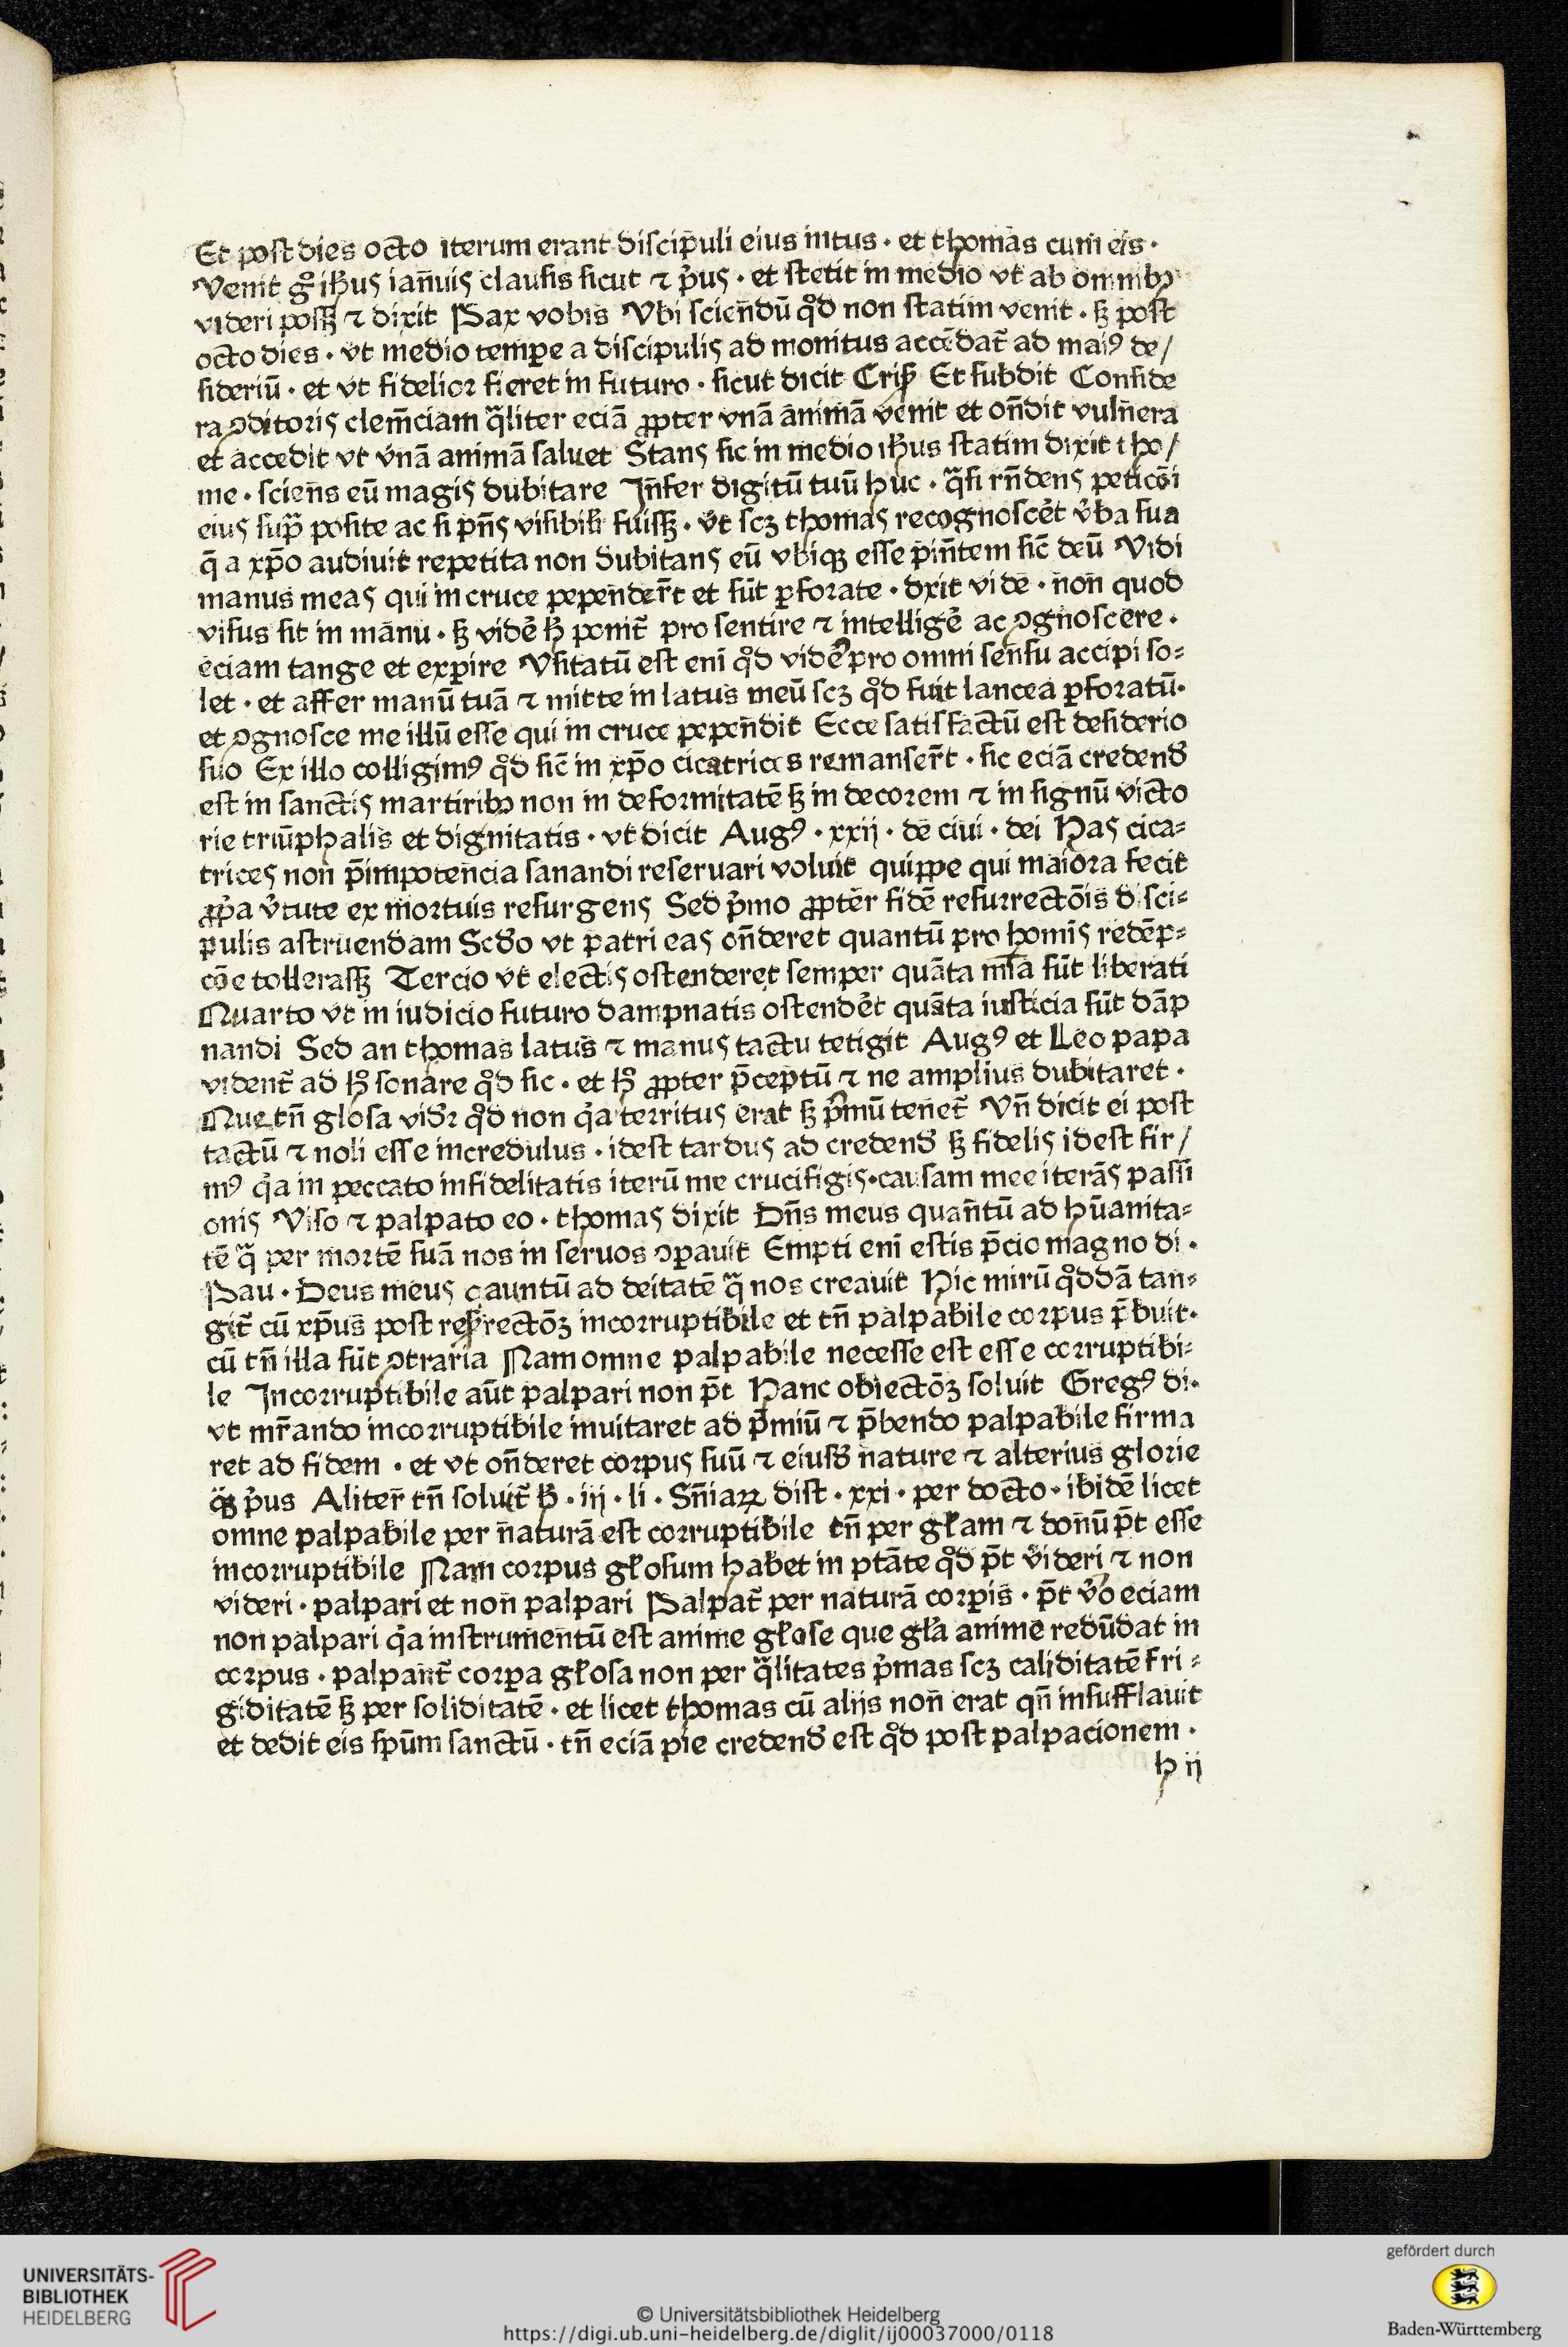 Et post dies octo iterum erant discipuli eius intus · et thomas cum eis ·
Venit gͦ ihūs ianuis clausis sicut ⁊ pⁱus · et stetit in medio vt ab omnibꝫ
videri possꝫ ⁊ dixit Pax vobis Vbi sciendū qͦd non statim venit · sꝫ post
octo dies · vt medio tempe a discipulis ad monitus accēdat̄ ad maiꝰ de/
sideriū · et vt fidelior fieret in futuro · sicut dicit Crisꝭ Et subdit Conside
ra ꝯditoris clem̄ciam qͣliter eciā ꝓpter vnā animā venit et on̄dit vulnera
et accedit vt vnā animā saluet Stans sic in medio ihūs statim dixit tho/
me · sciens eū magis dubitare Infer digitū tuū huc · qͣsi rn̄dens peticōi
eius supͣ posite ac si pn̄s visibilꝭ fuissꝫ · vt scꝫ thomas recognoscet̉ v̉ba sua
q̄ a xp̄o audiuit repetita non dubitans eū vbiqꝫ esse p̄sn̄tem sic̄ deū Vidi
manus meas qui in cruce pepender̄t et sūt ꝑforate · dxit vide · non quod
visus sit in manu · sꝫ vidẻ hͦ ponit̄ pro sentire ⁊ intelligẻ ac ꝯgnoscere ·
eciam tange et expire Vsitatū est eni qͦd vidẻ pro omni sensu accipi so=
let · et affer manū tuā ⁊ mitte in latus meū scꝫ qͦd fuit lancea ꝑforatū·
et ꝯgnosce me illū esse qui in cruce pependit Ecce satisfactū est desiderio
suo Ex illo colligimꝰ qͦd sic̄ in xp̄o cicatrices remanser̄t · sic eciā credend̄
est in sanctis martiribꝫ non in deformitatē sꝫ in decorem ⁊ in signū victo
rie triūphalis et dignitatis · vt dicit Augꝰ · xxij · de ciui · dei Has cica=
trices non p̄ impotencia sanandi reseruari voluit quippe qui maiora fecit
ꝓpⁱa v̉tute ex mortuis resurgens Sed pⁱmo ꝓpter fidē resurrectōis disci=
pulis astruendam Scd̄o vt patri eas on̄deret quantū pro homīs redēp=
cōe tollerassꝫ Tercio vt electis ostenderet semper quāta mīa sūt liberati
Quarto vt in iudicio futuro dampnatis ostendet̉ quāta iusticia sūt dāp
nandi Sed an thomas latus ⁊ manus tactu tetigit Augꝰ et Leo papa
vident̄ ad hͦ sonare qͦd sic · et hͦ ꝓpter p̄ceptū ⁊ ne amplius dubitaret ·
Que tn̄ glosa vid̄r qͦd non qͣ territus erat sꝫ pⁱmū tenet̄ Vn̄ dicit ei post
tactū ⁊ noli esse incredulus · idest tardus ad credend̄ sꝫ fidelis idest fir/
mꝰ qͣ in peccato infidelitatis iterū me crucifigis · causam mee iterās passi
onis Viso ⁊ palpato eo · thomas dixit Dn̄s meus quantū ad hūanita=
tē qͣ per mortē suā nos in seruos ꝯpauit Empti eni estis p̄cio magno di ·
Pau · Deus meus qauntū ad deitatē qͣ nos creauit Hic mirū qͦddā tan=
git̄ cū xp̄us post resr̄rectōꝫ incorruptibile et tn̄ palpabile corpus p̄buit·
cū tn̄ illa sūt ꝯtraria Nam omne palpabile necesse est esse corruptibi=
le Incorruptibile aūt palpari non pt̄ Hanc obiectōꝫ soluit Gregꝰ di·
vt mr̄ando incorruptibile inuitaret ad p̄miū ⁊ p̄bendo palpabile firma
ret ad fidem · et vt on̄deret corpus suū ⁊ eiusd̄ nature ⁊ alterius glorie
qͣꝫ pⁱus Aliter tn̄ soluit̄ hͦ · iij · li · Sn̄iaꝝ dist · xxi · per docto · ibidē licet
omne palpabile per naturā est corruptibile tn̄ per gl̄am ⁊ donū pt̄ esse
incorruptibile Nam corpus gl̄osum habet in ptāte qͦd pt̄ videri ⁊ non
videri · palpari et non palpari Palpat̄ per naturā corpis · pt̄ v̉o eciam
non palpari qͣ instrumentū est anime gl̄ose que gl̄a anime redūdat in
corpus · palpant̄ corpa gl̄osa non per qͣlitates pⁱmas scꝫ caliditatē fri=
giditatē sꝫ per soliditatē · et licet thomas cū alijs non erat qn̄ insufflauit
et dedit eis spūm sanctū · tn̄ eciā pie credend̄ est qͦd post palpacionem ·
h ij
UNIVERSITÄTS-
BIBLIOTHEK
HEIDELBERG
© Universitätsbibliothek Heidelberg
https://digi.ub.uni-heidelberg.de/diglit/ij00037000/0118
gefördert durch
Baden-Württemberg